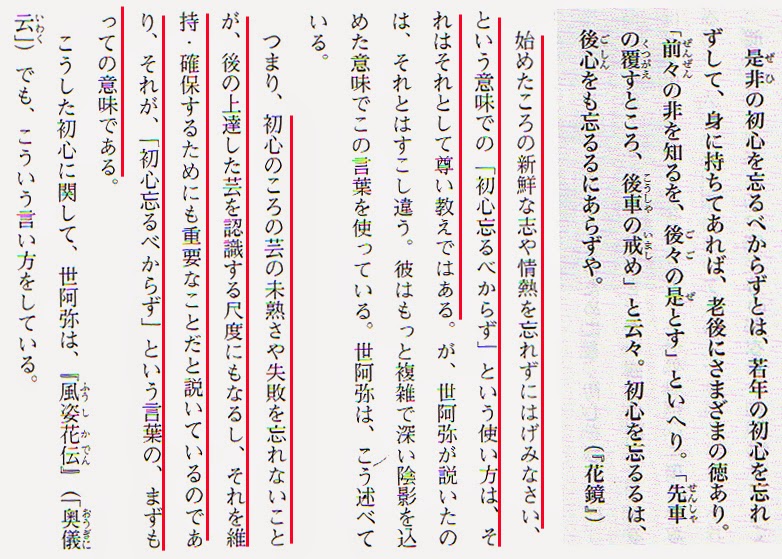 是非の初心を忘るべからずとは、若年の初心を忘れ
ずして、身に持ちてあれば、老後にさまざまの徳あり。
「前々の非を知るを、後々の是とす」といへり。「先車
の覆すところ、後車の戒め」と云々。初心を忘るるは、
後心をも忘るるにあらずや。　（『花鏡』）
始めたころの新鮮な志や情熱を忘れずにはげみなさい、
という意味での「初心忘るべからず」という使い方は、そ
れはそれとして尊い教えではある。が、世阿弥が説いたの
は、それとはすこし違う。彼はもっと複雑で深い陰影を込
めた意味でこの言葉を使っている。世阿弥は、こう述べて
いる。
つまり、初心のころの芸の未熟さや失敗を忘れないこと
が、後の上達した芸を認識する尺度にもなるし、それを維
持・確保するためにも重要なことだと説いているのであ
り、それが、「初心忘るべからず」という言葉の、まずも
っての意味である。
こうした初心に関して、世阿弥は、『風姿花伝』（「奥儀
云」）でも、こういう言い方をしている。